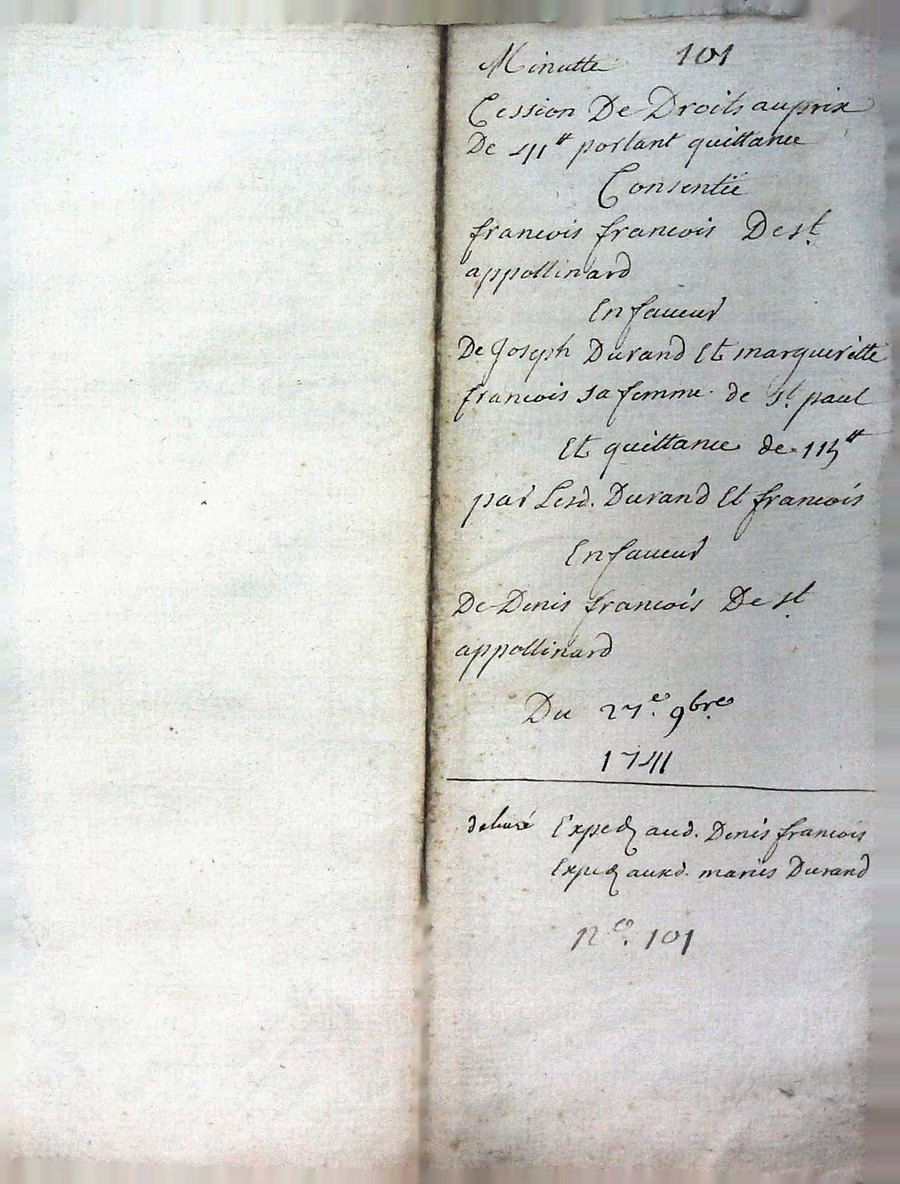 Minutte 101
Cession De Droits au prix
De 41# portant quittance
Consentie
francois francois De st.
appollinard
En faveur
De Joseph Durand Et margueritte
francois sa femme de st. paul
Et quittance de #
par Lesd. Durand Et francois
En faveur
De Denis francois De st.
appollinard
Du 27e. 9bre
1741
delivré Exped aud. Denis francois
Exped auxd. mariés Durand
No. 101